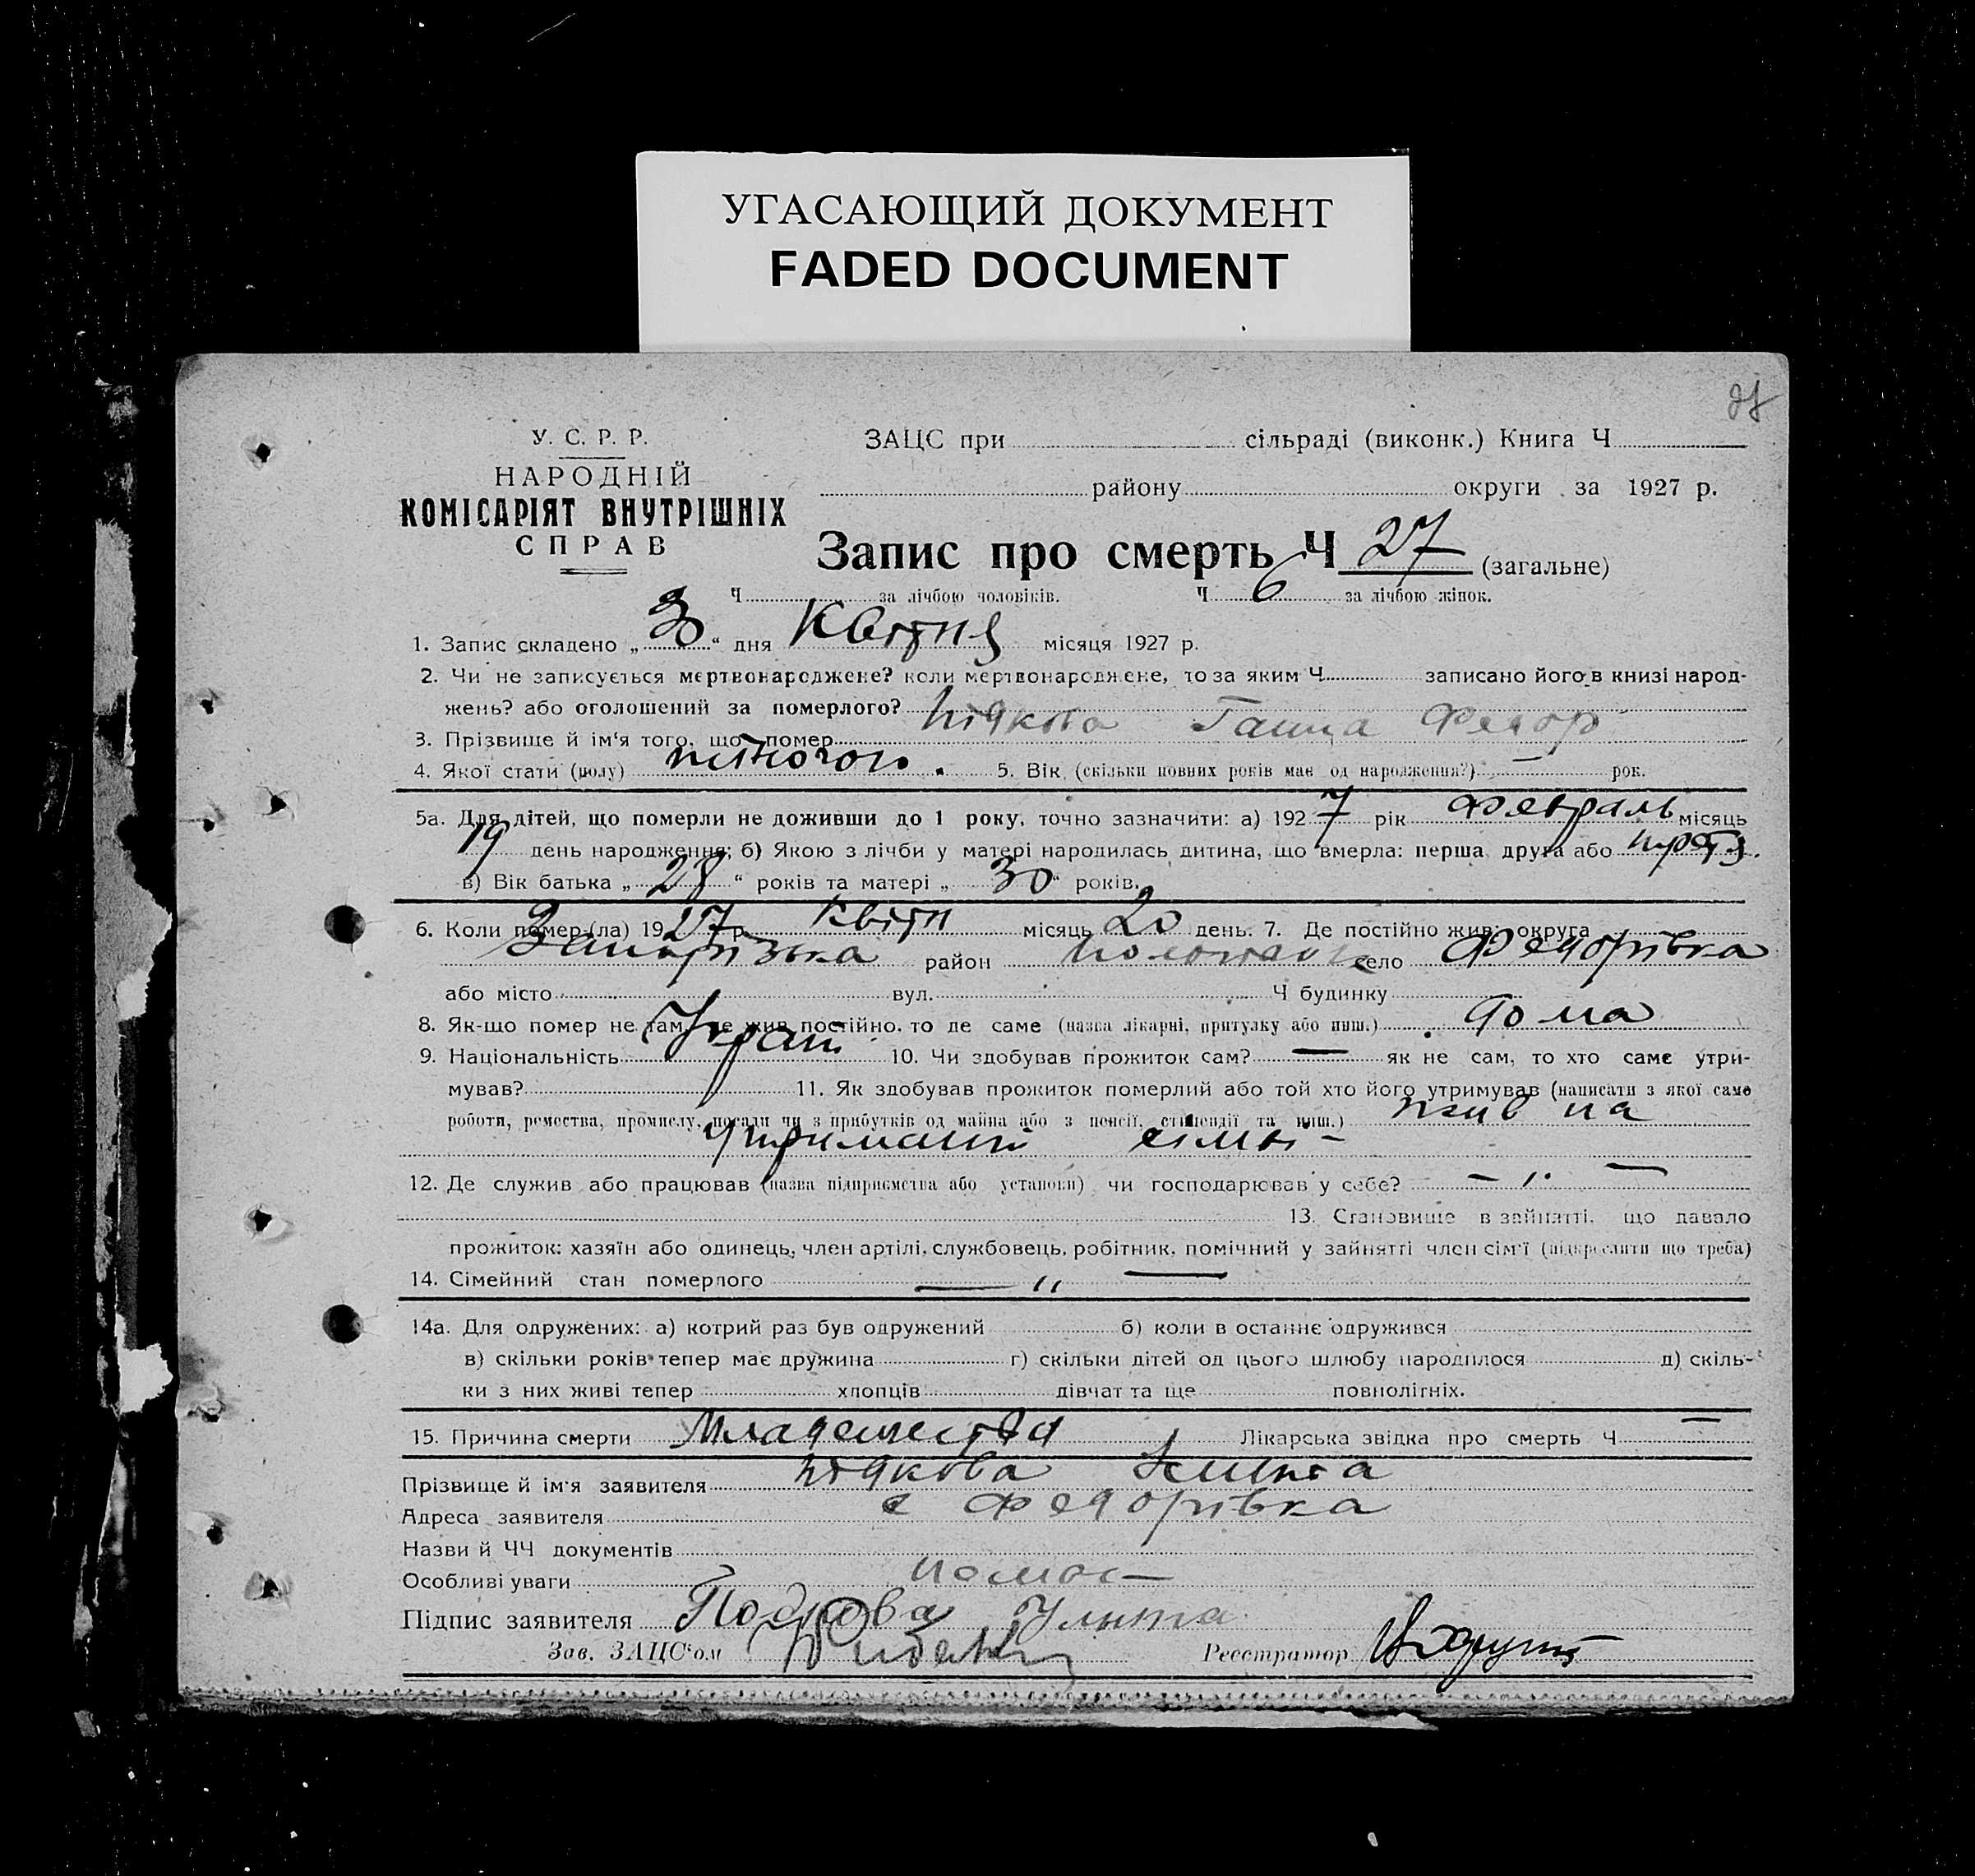 УГАСАЮЩИЙ ДОКУМЕНТ
FADED DOCUMENT
У. С. Р. Р.
НАРОДНІЙ
КОМІСАРІЯТ ВНУТРІШНІХ
СПРАВ
ЗАЦС при сільраді (виконк.) Книга Ч
району округи за 1927 р.
Запис про смерть Ч 27 (загальне)
Ч за лічбою чоловіків. Ч 6 за лічбою жінок.
1. Запис складено „30“ дня Квітня місяця 1927 р.
2. Чи не записується мертвонароджене? коли мертвонароджене, то за яким Ч записано його в книзі народ-
жень? або оголошений за померлого?
3. Прізвище й ім'я того, що помер Ганна Федор
4. Якої стати (полу) жіночого. 5. Вік (скільки повних років має од народження?) — рок.
5а. Для дітей, що померли не доживши до 1 року, точно зазначити: а) 1927 рік Февраль місяць
19 день народження; б) Якою з лічби у матері народилась дитина, що вмерла: перша, друга або третя.
в) Вік батька „28“ років та матері „30“ років.
6. Коли помер (ла) 1927 р. Квітн місяць 20 день. 7. Де постійно жив: округа
Запорізька район село Федорівка
або місто вул. Ч будинку
8. Як-що помер не там, де жив постійно, то де саме (назва лікарні, притулку або инш.) дома
9. Національність Украї 10. Чи здобував прожиток сам? — як не сам, то хто саме утри-
мував? 11. Як здобував прожиток померлий або той хто його утримував (написати з якої саме
роботи, ремества, промислу, посади чи з прибутків од майна або з пенсії, стипендії та инш.) жив на
утриманні сімьї -
12. Де служив або працював (назва підприємства або установи) чи господарював у себе? — ,, —
13. Становище в зайнятті, що давало
прожиток: хазяїн або одинець, член артілі, службовець, робітник, помічний у зайнятті член сім'ї (підкреслити що треба)
14. Сімейний стан померлого — ,, —
14а. Для одружених: а) котрий раз був одружений б) коли в останнє одружився
в) скільки років тепер має дружина г) скільки дітей од цього шлюбу народилося д) скіль-
ки з них живі тепер хлопців дівчат та ще повнолітніх.
15. Причина смерти Младенества Лікарська звідка про смерть Ч —
Прізвище й ім'я заявителя
Адреса заявителя с Федорівка
Назви й ЧЧ документів
Особливі уваги
Підпис заявителя Улита
Зав. ЗАЦС'ом Реєстратор